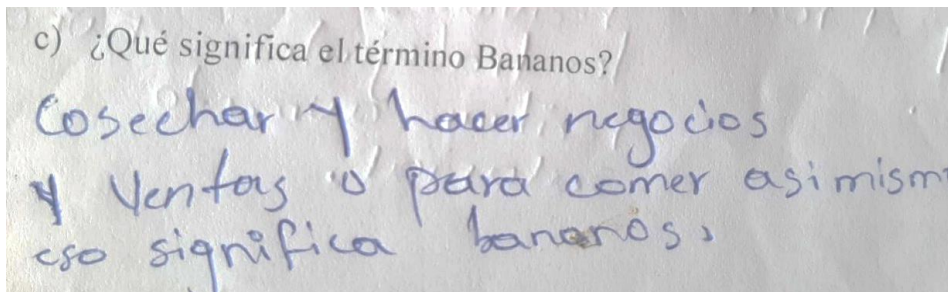 c) ¿Qué significa el término Bananos?
Cosechar y hacer negocios
y ventas o para comer asimism
eso significa bananos,